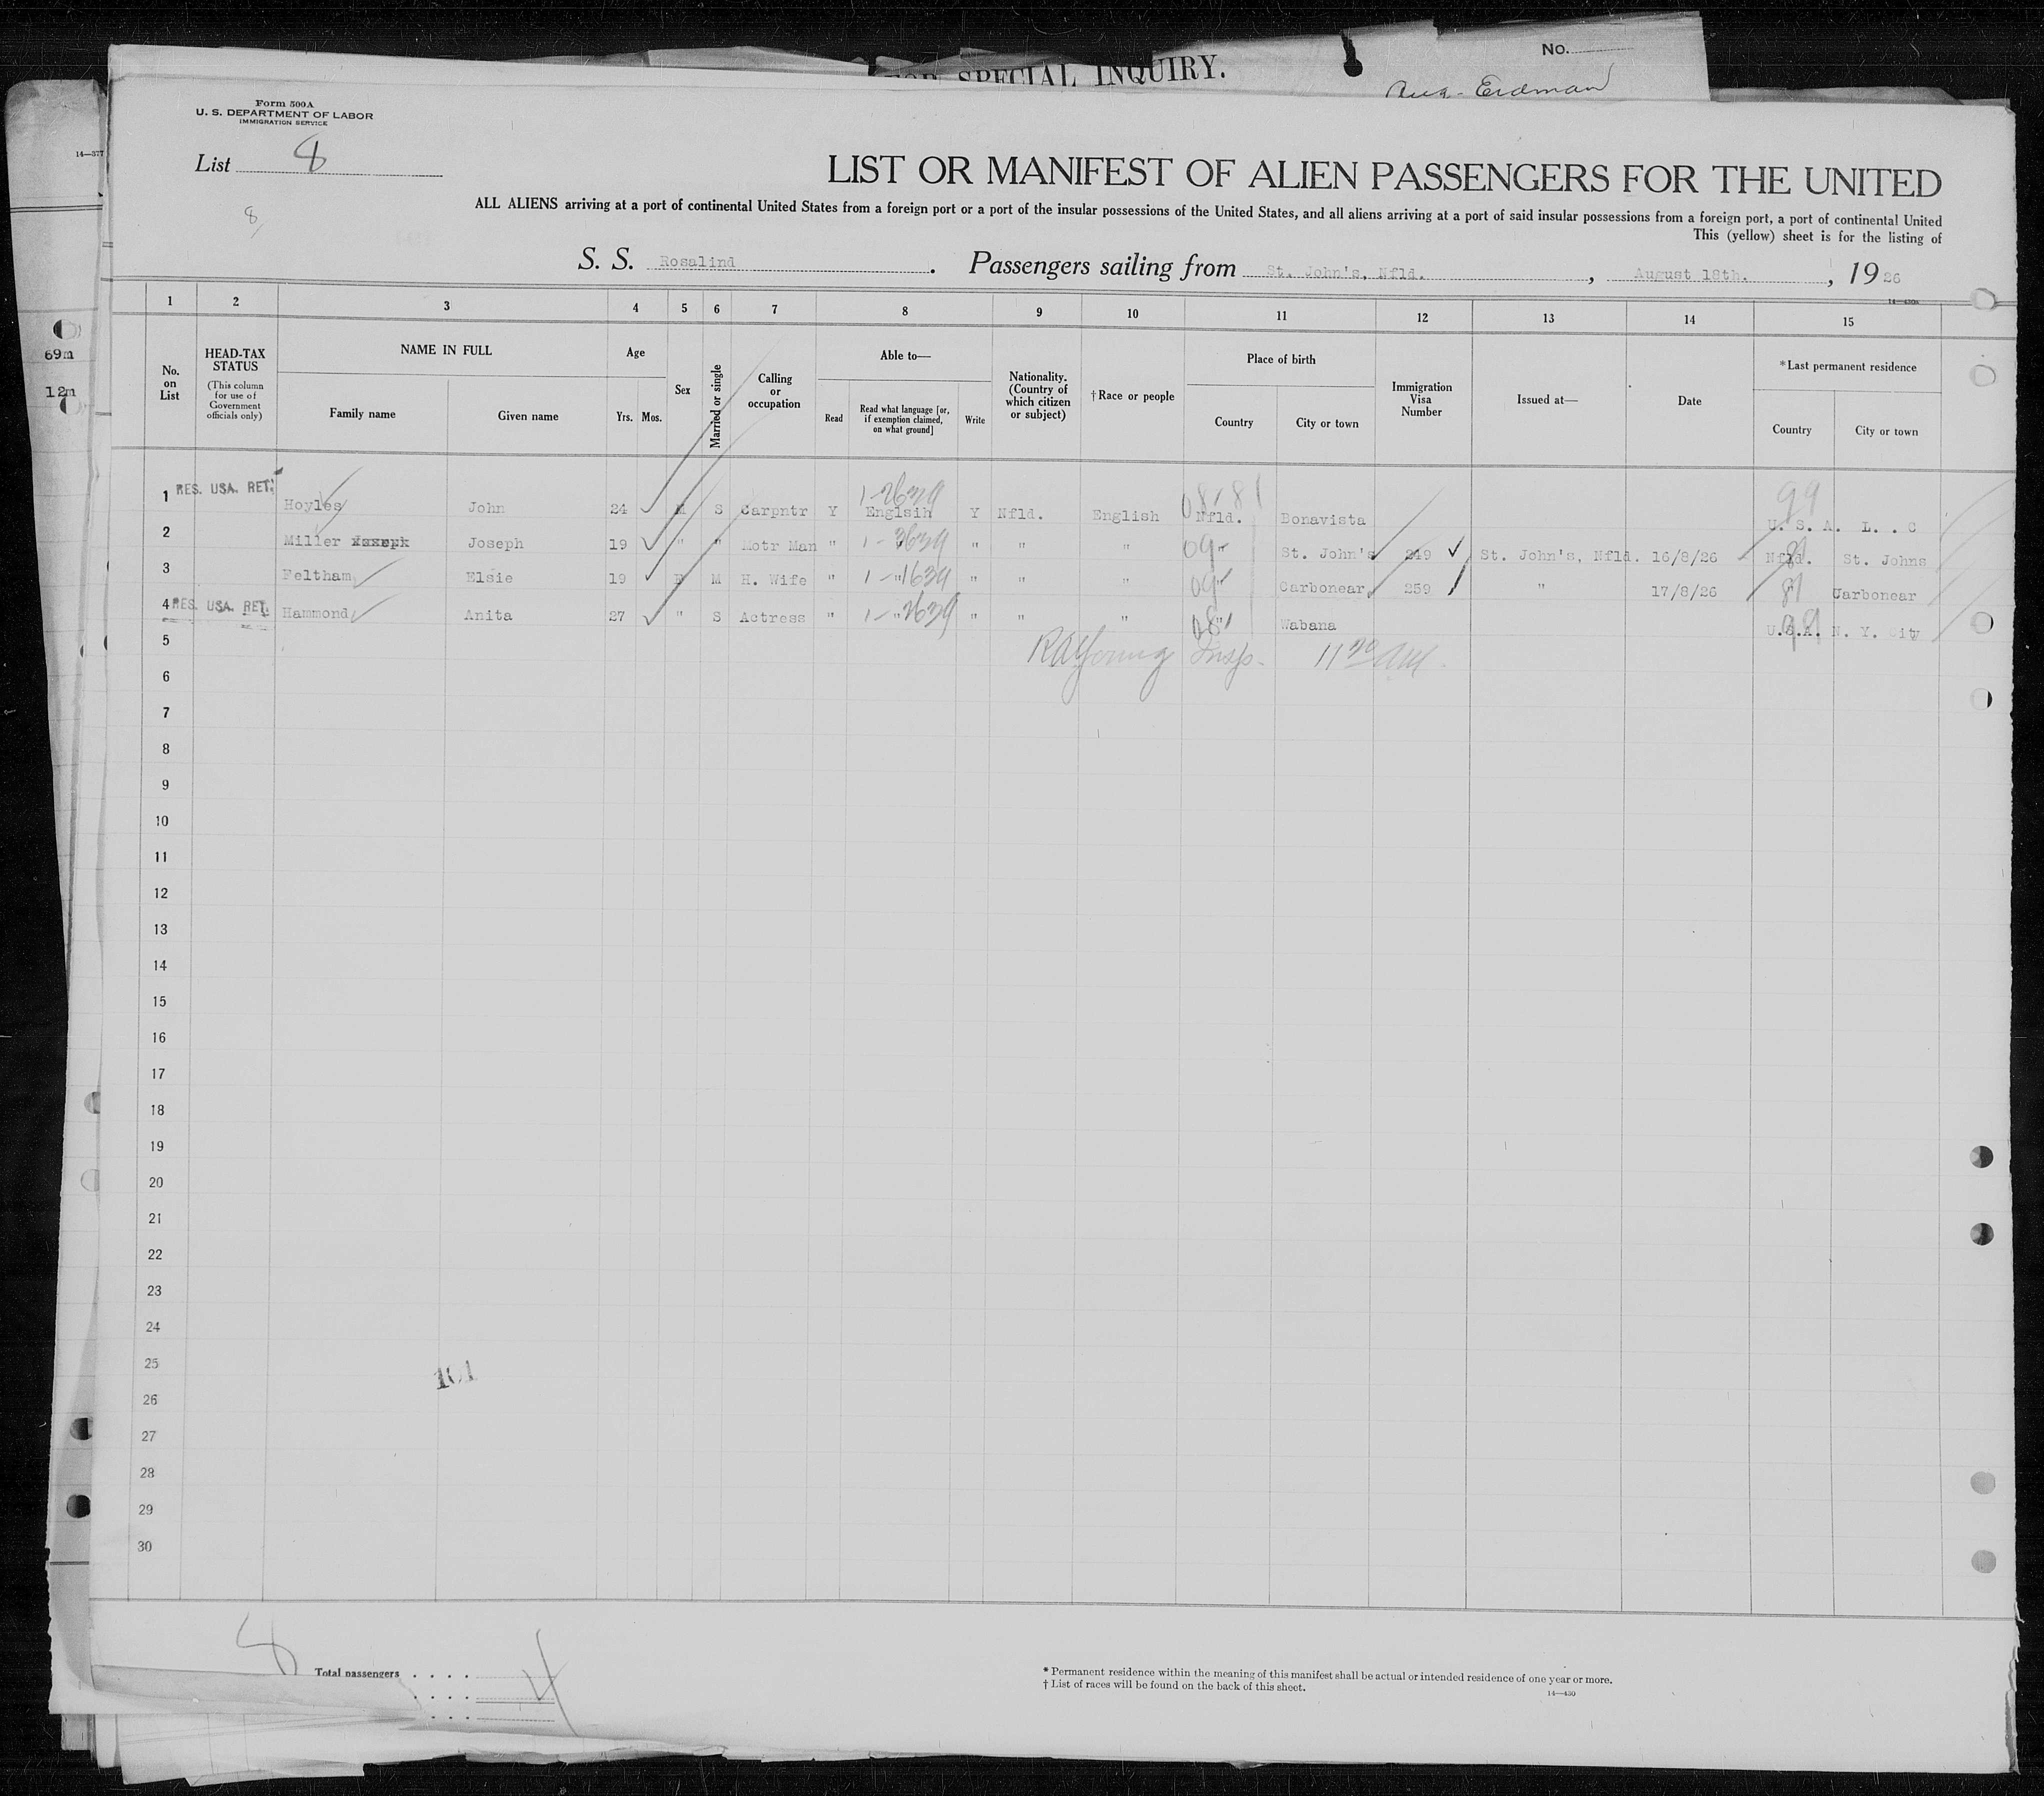 FOR SPECIAL INQUIRY.
No.
Erdman
Form 500A
U. S. DEPARTMENT OF LABOR
IMMIGRATION SERVICE
14—377
List 8
8
LIST OR MANIFEST OF ALIEN PASSENGERS FOR THE UNITED
ALL ALIENS arriving at a port of continental United States from a foreign port or a port of the insular possessions of the United States, and all aliens arriving at a port of said insular possessions from a foreign port, a port of continental United
This (yellow) sheet is for the listing of
S. S. Rosalind. Passengers sailing from St. John's, Nfld., August 18th., 1926
14—430a
1 2 3 4 5 6 7 8 9 10 11 12 13 14 15
69m
12m
No. on List
HEAD-TAX STATUS
(This column for use of Government officials only)
NAME IN FULL
Family name
Given name
Age
Yrs. Mos.
Sex
Married or single
Calling or occupation
Able to—
Read
Read what language [or, if exemption claimed, on what ground]
Write
Nationality. (Country of which citizen or subject)
†Race or people
Place of birth
Country
City or town
Immigration Visa Number
Issued at—
Date
*Last permanent residence
Country
City or town
1-2639 08/81 99
1 RES. USA. RET. Hoyles John 24 M S Carpntr Y Englsih Y Nfld. English Nfld. Bonavista U. S. A. L. . C
2 Miller Joseph 19 " " Motr Man " 1-3639 " " " 09" St. John's 249 St. John's, Nfld. 16/8/26 Nfld. St. Johns
3 Feltham Elsie 19 F M H. Wife " 1-"1639 " " " 09" Carbonear 259 " 17/8/26 81 Carbonear
4 RES. USA. RET. Hammond Anita 27 " S Actress " 1-"2639 " " " 08" Wabana U.S.A. N. Y. City
5 RA Young Insp. 11 20 AM.
6
7
8
9
10
11
12
13
14
15
16
17
18
19
20
21
22
23
24
25
101
26
27
28
29
30
4
Total passengers . . . .
. . . . 4
. . .
* Permanent residence within the meaning of this manifest shall be actual or intended residence of one year or more.
† List of races will be found on the back of this sheet.
14—430